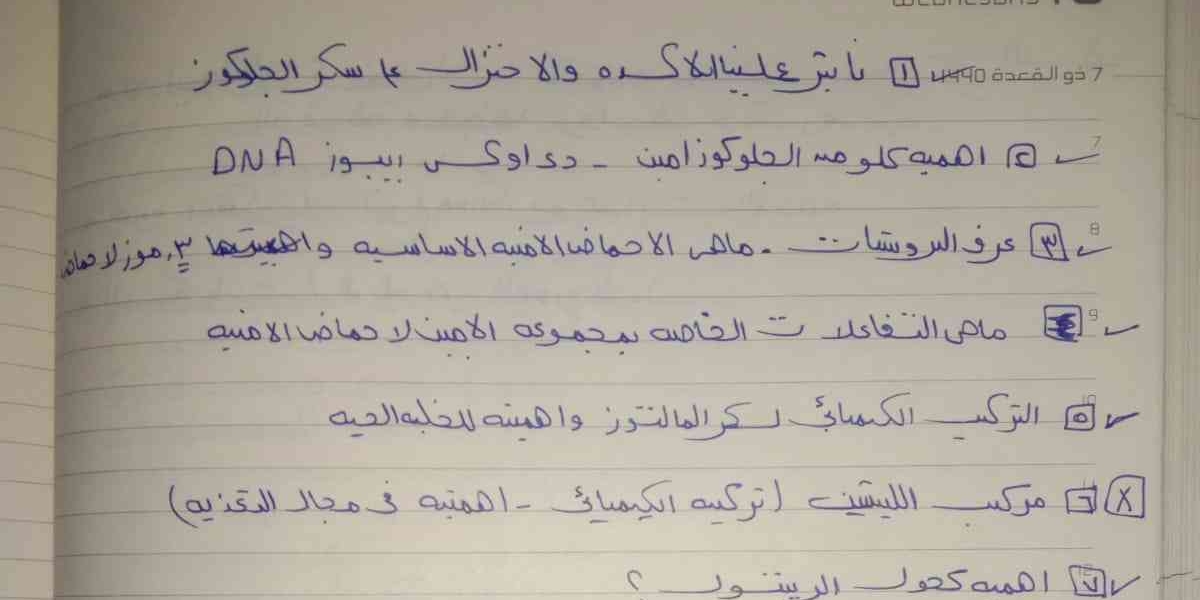 7 ذو القعدة 1440 [1] تأثير عمليتا الاكسده والاختزال ع سكر الجلوكوز
7
✓ [2] اهميه كلو من الجلوكوز امين - دى اوكسى ريبوز DNA
8
✓ [٣] عرف البروتينات . ماهى الاحماض الامنيه الاساسيه واهميتها ٣ رموز لاحماض
9
✓ ماهى التفاعلات الخاصه بمجموعه الامين لاحماض الامنيه
✓ [٥] التركيب الكيميائي لسكر المالتوز واهميته للخليه الحيه
[X] [٦] مركب الليثين (تركيبه الكيميائي - اهميته فى مجال التغذيه)
✓ [٧] اهميه كحول الريتنول ؟